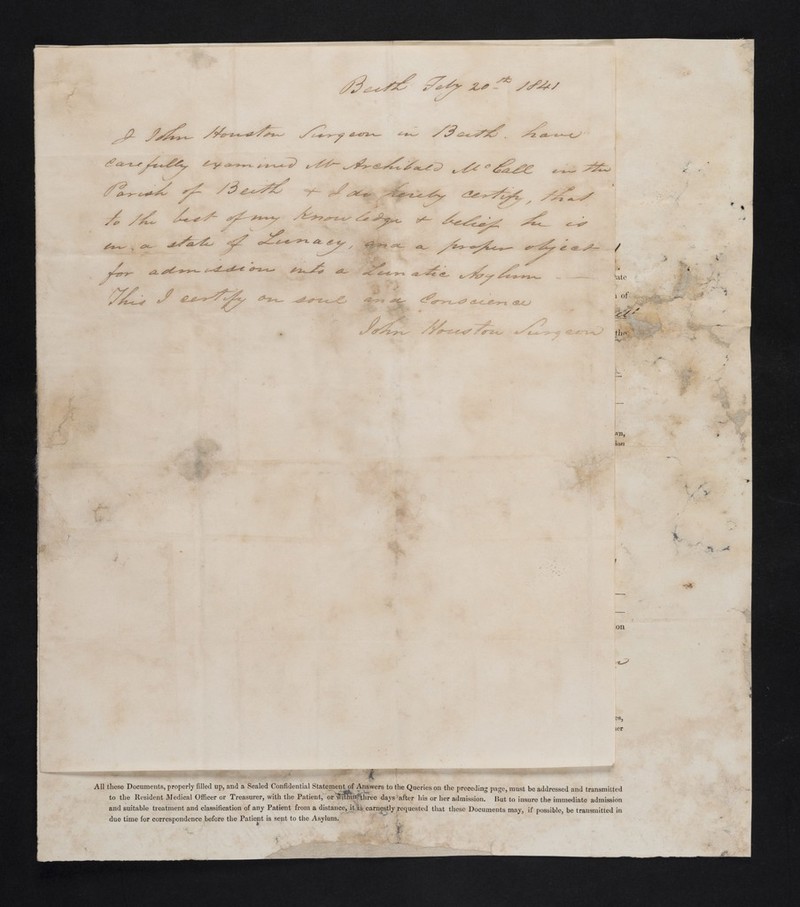 Beith Feby 20th 1841
I John Houston Surgeon in Beith have
carefully examined Mr Archibald McCall in the
Parish of Beith + I do hereby certify, that
to the best of my knowledge + belief he is
in a state of Lunacy, and a proper object
for admission into a Lunatic Asylum —
This I certify on soul and Conscience
John Houston Surgeon
ate
of
the
wn,
on
All these Documents, properly filled up, and a Sealed Confidential Statement of Answers to the Queries on the preceding page, must be addressed and transmitted
to the Resident Medical Officer or Treasurer, with the Patient, or within three days after his or her admission. But to insure the immediate admission
and suitable treatment and classification of any Patient from a distance, it is earnestly requested that these Documents may, if possible, be transmitted in
due time for correspondence before the Patient is sent to the Asylum.